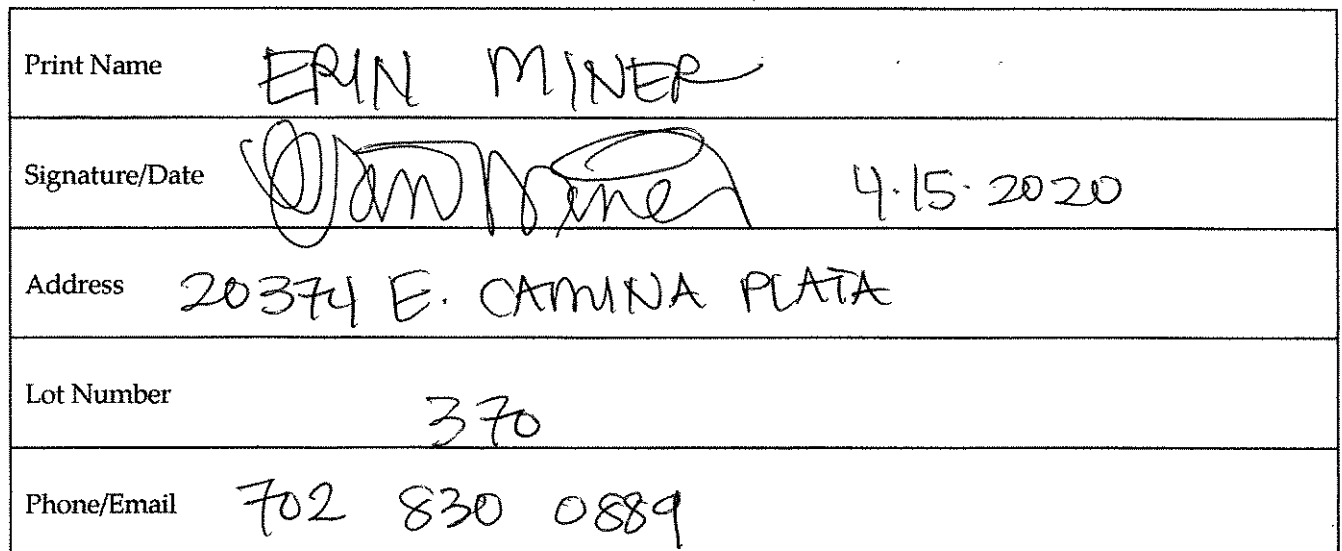 Print Name ERIN MINER
Signature/Date Erin Miner 4.15.2020
Address 20374 E. CAMINA PLATA
Lot Number 370
Phone/Email 702 830 0889